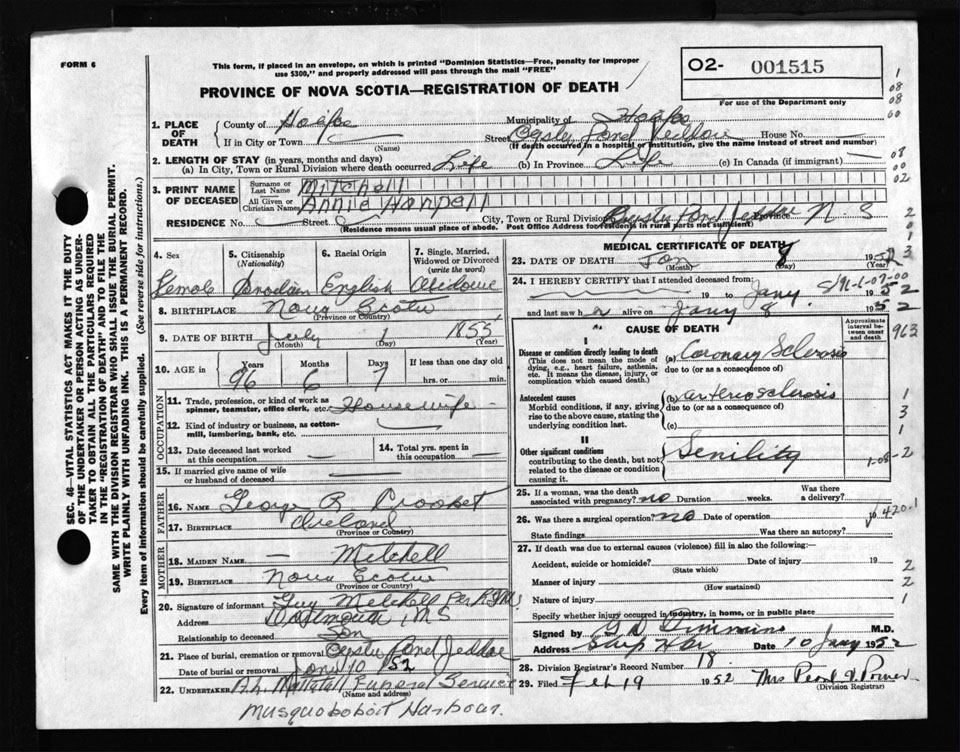 FORM 6
This form, if placed in an envelope, on which is printed "Dominion Statistics—Free, penalty for improper
use $300," and properly addressed will pass through the mail "FREE"
O2- 001515
For use of the Department only
PROVINCE OF NOVA SCOTIA—REGISTRATION OF DEATH
1. PLACE OF DEATH
County of Halifax Municipality of Halifax
If in City or Town (Name) Street Oyster Pond Jeddore House No. —
(If death occurred in a hospital or institution, give the name instead of street and number)
2. LENGTH OF STAY (in years, months and days)
(a) In City, Town or Rural Division where death occurred Life (b) In Province Life (c) In Canada (if immigrant) —
3. PRINT NAME OF DECEASED
Surname or Last Name Mitchell
All Given or Christian Names Annie Harpell
RESIDENCE No. Street City, Town or Rural Division Oyster Pond Jeddore Province N S
(Residence means usual place of abode. Post Office Address for residents in rural parts not sufficient)
4. Sex
Female
5. Citizenship (Nationality)
Canadian
6. Racial Origin
English
7. Single, Married, Widowed or Divorced (write the word)
8. BIRTHPLACE Nova Scotia
(Province or Country)
9. DATE OF BIRTH July 1 1855
(Month) (Day) (Year)
10. AGE in Years Months Days If less than one day old
96 6 7 hrs. or min.
OCCUPATION
11. Trade, profession, or kind of work as spinner, teamster, office clerk, etc. Housewife
12. Kind of industry or business, as cotton-mill, lumbering, bank, etc. —
13. Date deceased last worked at this occupation —
14. Total yrs. spent in this occupation —
15. If married give name of wife or husband of deceased —
FATHER
16. NAME George R
17. BIRTHPLACE Ireland
(Province or Country)
MOTHER
18. MAIDEN NAME — Mitchell
19. BIRTHPLACE Nova Scotia
(Province or Country)
20. Signature of informant Guy Mitchell Per
Address Dartmouth, N S
Relationship to deceased Son
21. Place of burial, cremation or removal Oyster Pond Jeddore
Date of burial or removal Jan 10 52
22. UNDERTAKER Funeral Service
(Name and address)
Musquoboboit Harbour.
MEDICAL CERTIFICATE OF DEATH
23. DATE OF DEATH Jan 8 1952
(Month) (Day) (Year)
24. I HEREBY CERTIFY that I attended deceased from:
19 to Jany 8 1952
and last saw h er alive on Jany 8 1952
CAUSE OF DEATH
Approximate interval between onset and death
I
Disease or condition directly leading to death
(This does not mean the mode of dying, e.g., heart failure, asthenia, etc. It means the disease, injury, or complication which caused death.)
(a) Coronary Sclerosis
due to (or as a consequence of)
Antecedent causes
Morbid conditions, if any, giving rise to the above cause, stating the underlying condition last.
(b) arteriosclerosis
due to (or as a consequence of)
(c)
II
Other significant conditions
contributing to the death, but not related to the disease or condition causing it.
Senility
25. If a woman, was the death associated with pregnancy? no Duration weeks. Was there a delivery?
26. Was there a surgical operation? no Date of operation
State findings Was there an autopsy?
27. If death was due to external causes (violence) fill in also the following:—
Accident, suicide or homicide? Date of injury 19
(State which)
Manner of injury
(How sustained)
Nature of injury
Specify whether injury occurred in industry, in home, or in public place
Signed by M.D.
Address Ship Har Date 10 Jany 1952
28. Division Registrar's Record Number 18.
29. Filed Feb 19 1952 Mrs Pearl
(Division Registrar)
SEC. 46—VITAL STATISTICS ACT MAKES IT THE DUTY
OF THE UNDERTAKER OR PERSON ACTING AS UNDER-
TAKER TO OBTAIN ALL THE PARTICULARS REQUIRED
IN THE "REGISTRATION OF DEATH" AND TO FILE THE
SAME WITH THE DIVISION REGISTRAR WHO SHALL ISSUE THE BURIAL PERMIT.
WRITE PLAINLY WITH UNFADING INK. THIS IS A PERMANENT RECORD.
Every item of information should be carefully supplied. (See reverse side for instructions.)
1
08
08
60
08
00
02
2
0
1
3
963
1
3
1
2
420.1
2
2
1